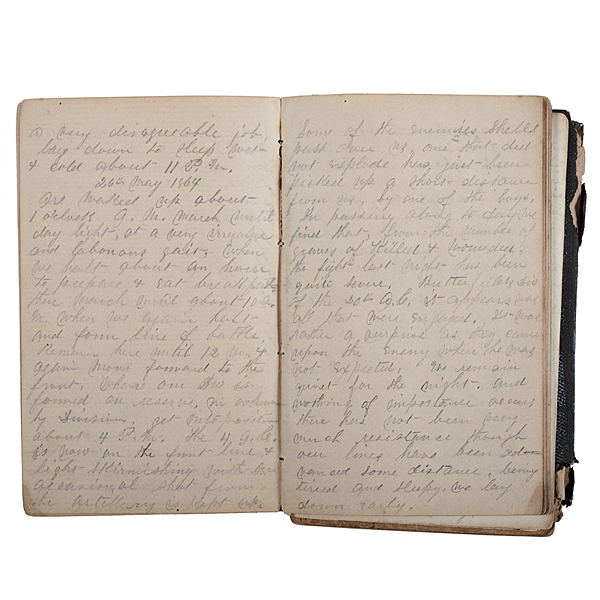 a very disagreeable job,
lay down to sleep wet
& cold about 11 P.M.
26th May 1864
Are waked up about
1 oclock A. M. march until
day light, at a very irregular
and laborous gait; when
we halt about an hour
to prepare & eat breakfast,
then march until about 10 A.
M. when we again halt
and form line of battle.
Remain here until 12 M. &
again move forward to the
front. Where our Div is
formed on reserve, in column
by Division. get into position
about 4 P.M. The 4 A.C.
is now on the front line &
light skirmishing with an
occasional shot from
the artillery is kept up.
Some of the enemies shells
pass over us, one that did
not explode has just been
picked up a short distance
from us, by one of the boys.
In passing along to day we
find that, from the number of
graves of Killed & wounded
the fight last night has been
quite severe. Butterfields Div
of the 20th A.C. it appears was
all that were engaged. It was
rather a surprise as they came
upon the enemy when he was
not expected. We remain
quiet for the night. and
nothing of importance occurs
there has not been very
much resistance though
our lines have been ad-
vanced some distance, being
tired and sleepy. we lay
down early.